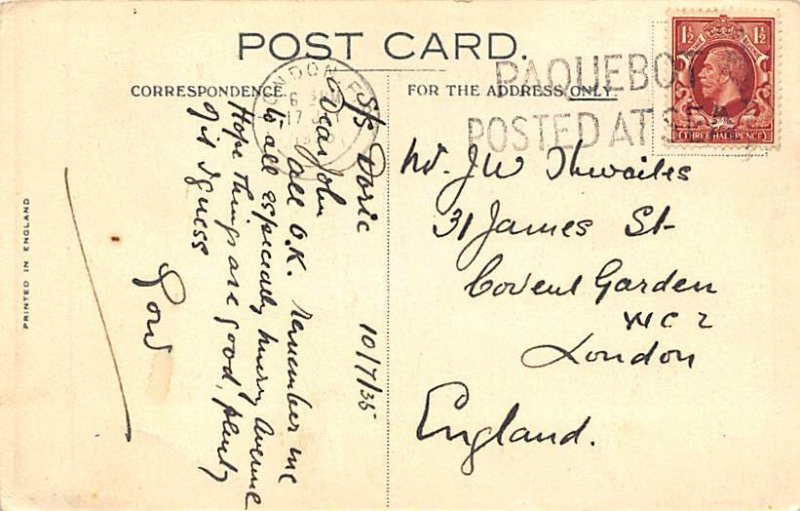 POST CARD.
CORRESPONDENCE
FOR THE ADDRESS ONLY.
LONDON
6
17
PAQUEBOT
POSTED AT SEA
1½ 1½
THREE HALFPENCE
S/S Doric
10/7/35
Dear John
All O.K. remember me
to all especially Avenue
Hope things are good, plenty
of it I guess
PRINTED IN ENGLAND
Mr. J W Thwaites
31 James St
Covent Garden
WC2
London
England.